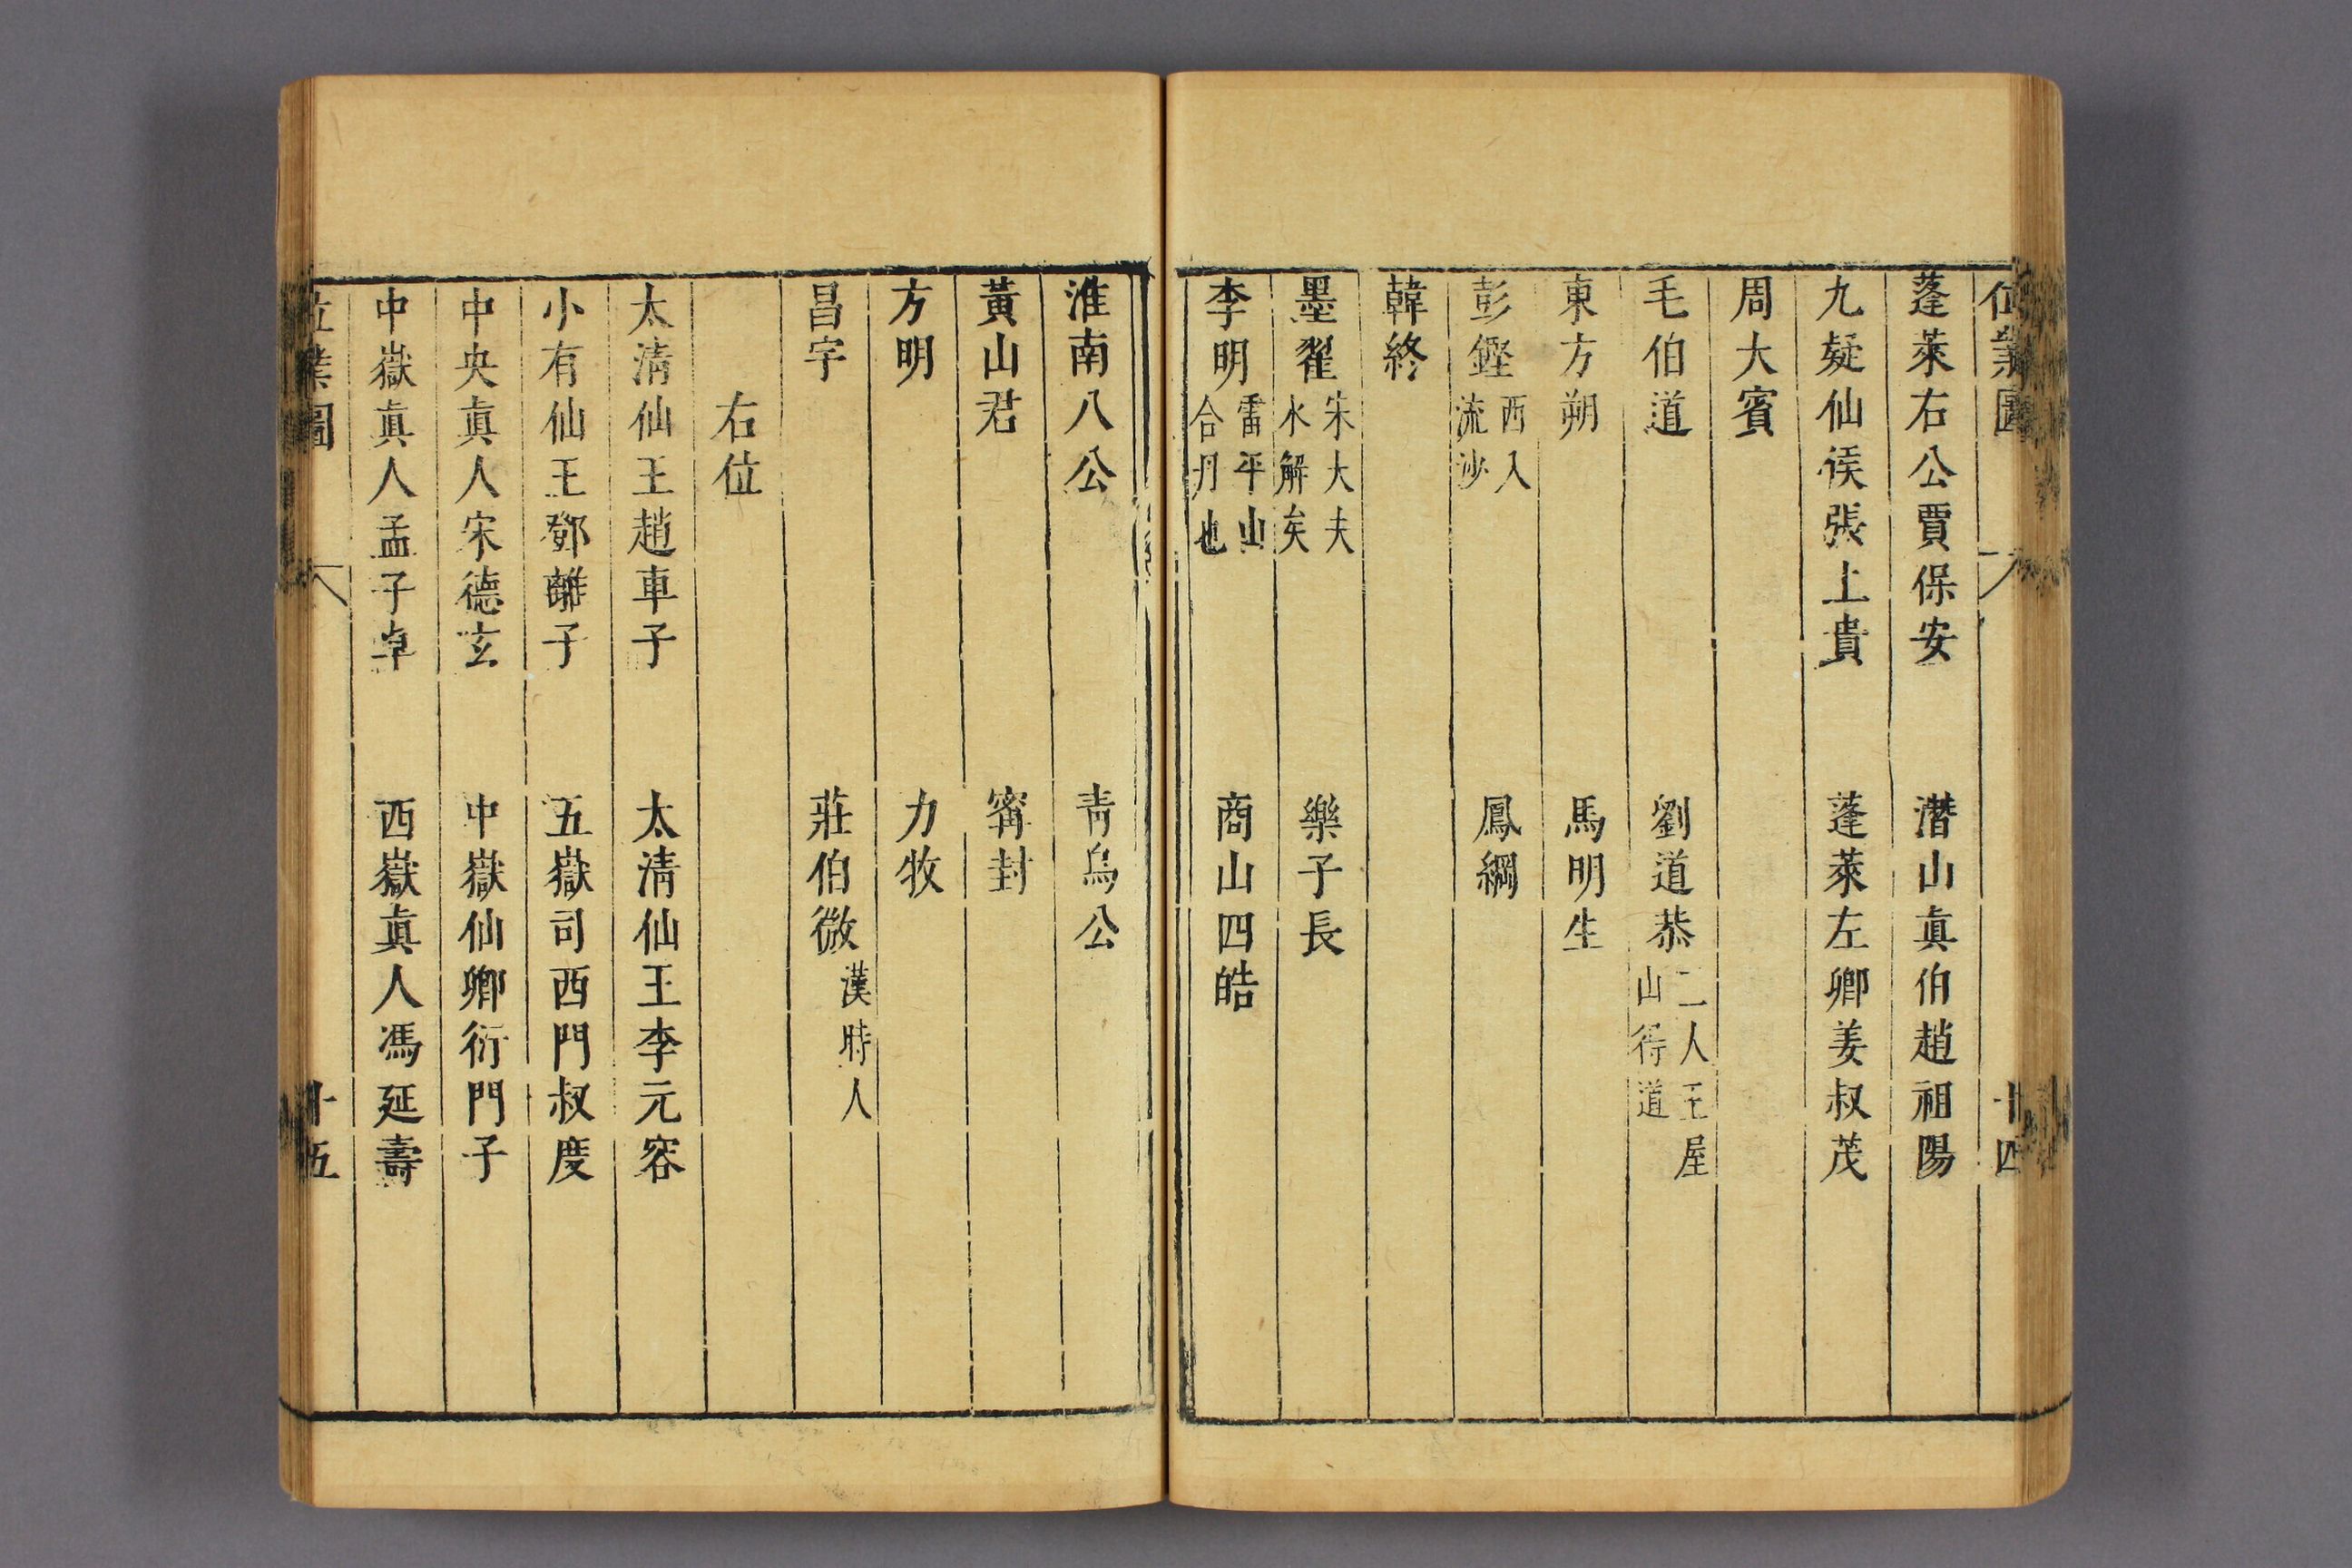 位業圖 十四
蓬萊右公賈保安 潛山真伯趙祖陽
九疑仙侯張上貴 蓬萊左卿姜叔茂
周大賓
毛伯道 劉道恭二人王屋山得道
東方朔 馬明生
彭鏗西入流沙 鳳綱
韓終
墨翟宋大夫水解矣 樂子長
李明雷平山合丹也 商山四皓
淮南八公 青烏公
黃山君 甯封
方明 力牧
昌宇 莊伯微漢時人
右位
太清仙王趙車子 太清仙王李元容
小有仙王鄧離子 五嶽司西門叔度
中央真人宋德玄 中嶽仙卿衍門子
中嶽真人孟子卓 西嶽真人馮延壽
位業圖 十五